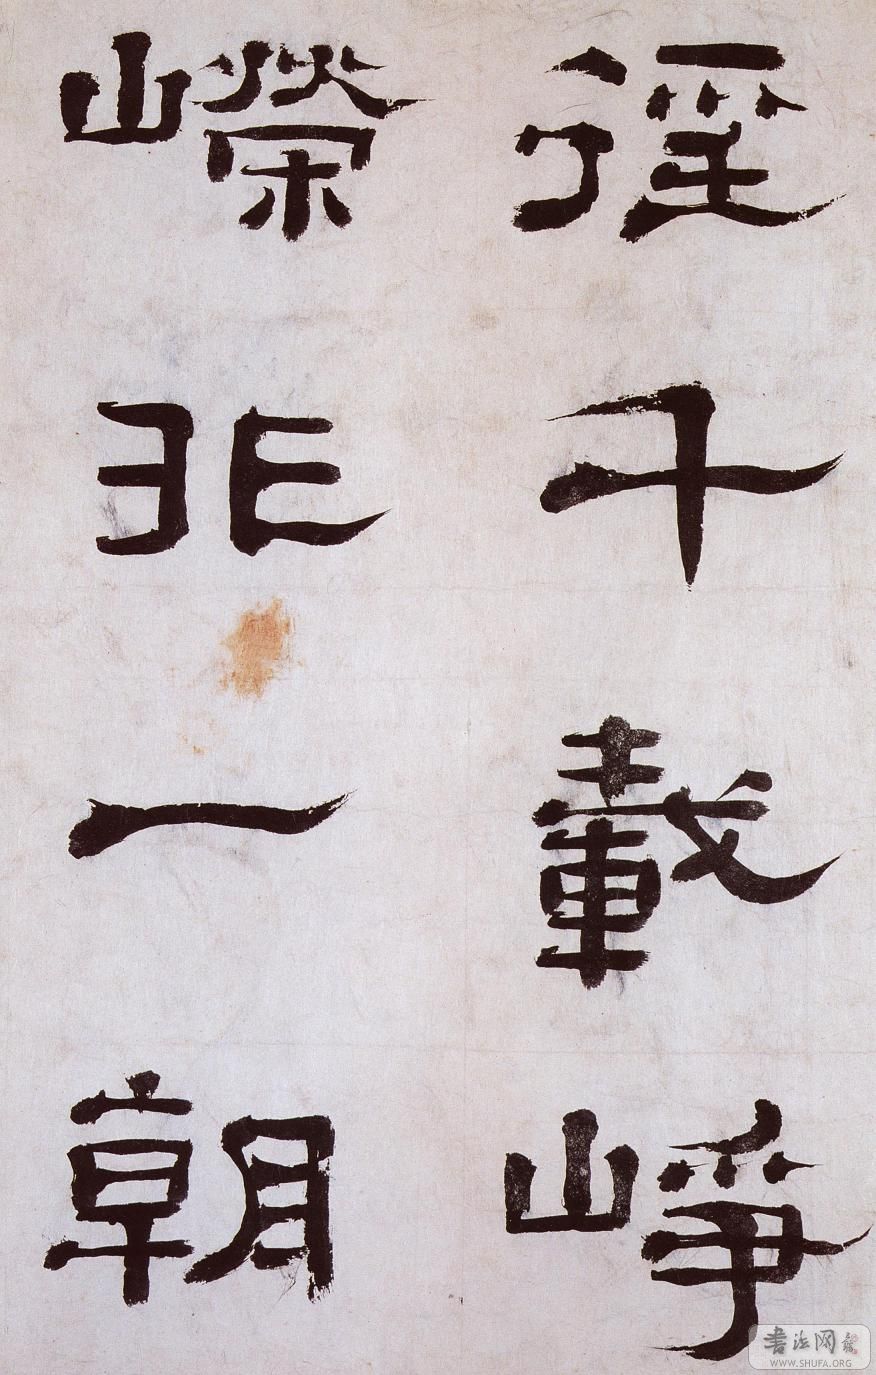 徑千載崢
嶸非一朝
書法网
WWW.SHUFA.ORG